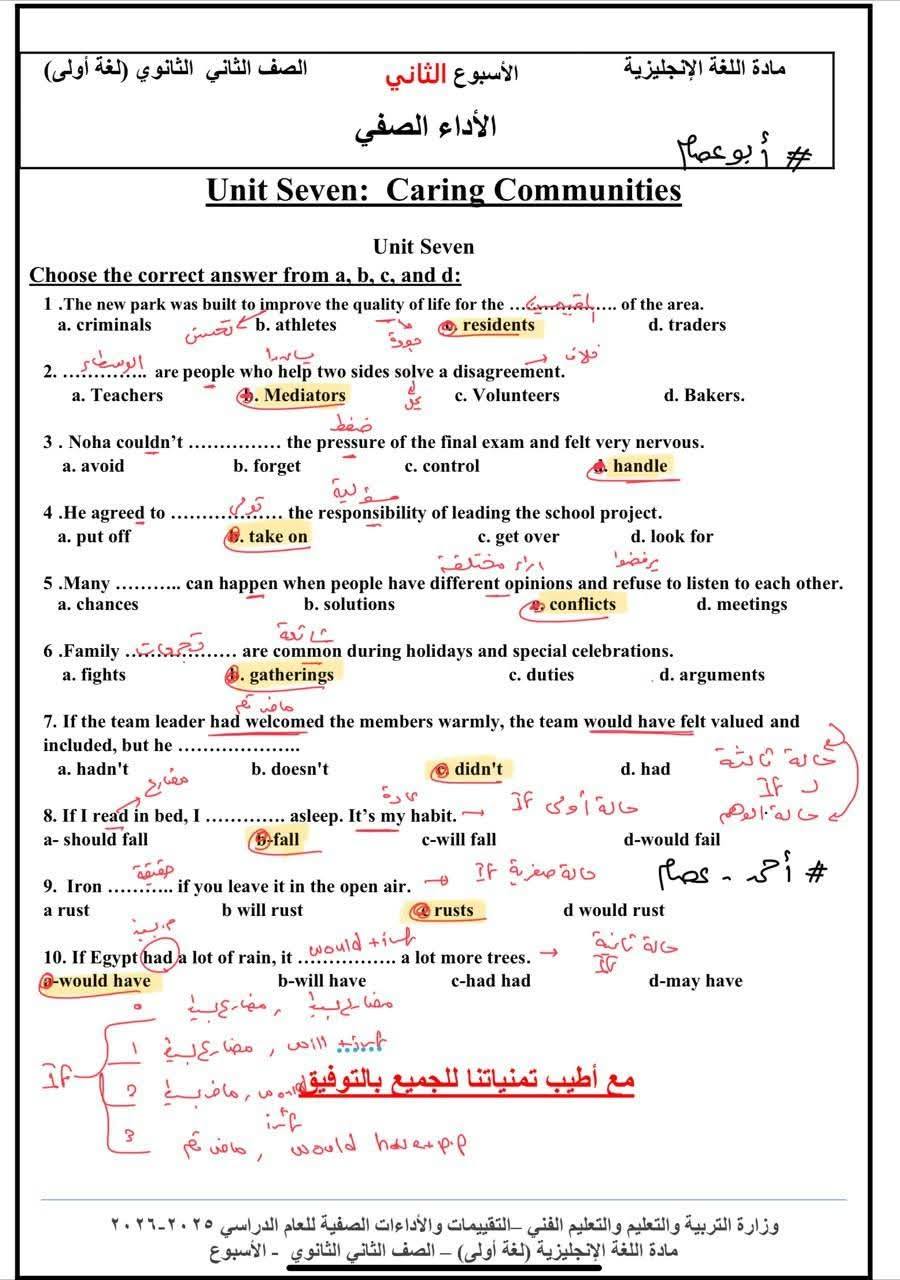 مادة اللغة الإنجليزية الأسبوع الثاني الصف الثاني الثانوي (لغة أولى)
الأداء الصفي
# أبو عصام
Unit Seven: Caring Communities
Unit Seven
Choose the correct answer from a, b, c, and d:
1 .The new park was built to improve the quality of life for the …المقيمين…. of the area.
تحسن جودة
a. criminals b. athletes c. residents d. traders
الوسطاء خلاف
2. ………….. are people who help two sides solve a disagreement.
a. Teachers b. Mediators c. Volunteers d. Bakers.
ضغط
3 . Noha couldn’t …………… the pressure of the final exam and felt very nervous.
a. avoid b. forget c. control d. handle
تولى مسؤلية
4 .He agreed to ……………… the responsibility of leading the school project.
a. put off b. take on c. get over d. look for
اراء مختلفة يرفضوا
5 .Many ……….. can happen when people have different opinions and refuse to listen to each other.
a. chances b. solutions c. conflicts d. meetings
تجمعات شائعة
6 .Family ……………… are common during holidays and special celebrations.
a. fights b. gatherings c. duties d. arguments
ماضى تم
7. If the team leader had welcomed the members warmly, the team would have felt valued and
included, but he ………………..
a. hadn't b. doesn't c. didn't d. had
حالة ثالثة
If
حالة الوهم
مضارع عادة
8. If I read in bed, I …………. asleep. It’s my habit. → If حالة أولى
a- should fall b-fall c-will fall d-would fail
# أحمد - عصام
حقيقة
9. Iron ……….. if you leave it in the open air. → If حالة صفرية
a rust b will rust c rusts d would rust
would + inf
10. If Egypt had a lot of rain, it ……………. a lot more trees. → حالة ثانية If
a-would have b-will have c-had had d-may have
If
0 مضارع بسيط , مضارع بسيط
1 مضارع بسيط , will + inf
2 ماضى بسيط , would inf
3 ماضى تم , would have + p.p
مع أطيب تمنياتنا للجميع بالتوفيق
وزارة التربية والتعليم والتعليم الفني –التقييمات والأداءات الصفية للعام الدراسي ٢٠٢٥-٢٠٢٦
مادة اللغة الإنجليزية (لغة أولى) – الصف الثاني الثانوي - الأسبوع